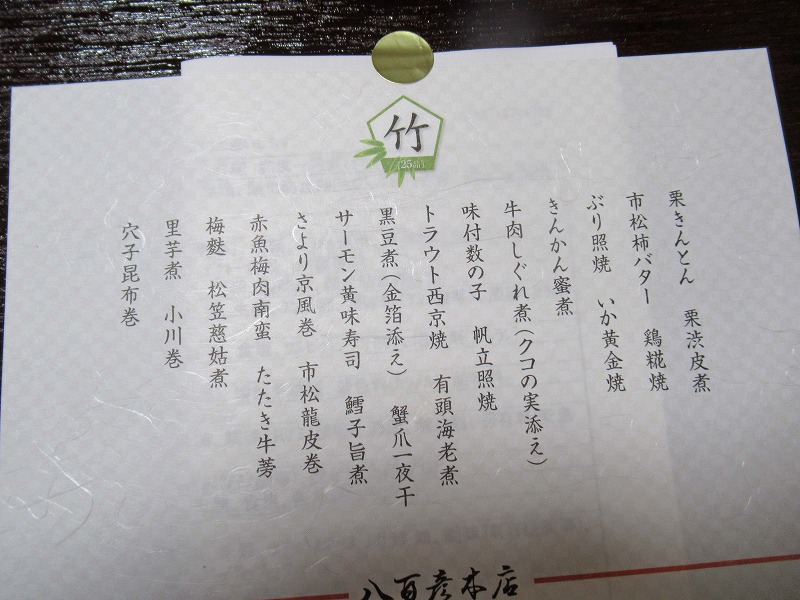 竹
25品目
栗きんとん　栗渋皮煮
市松柿バター　鶏糀焼
ぶり照焼　いか黄金焼
きんかん蜜煮
牛肉しぐれ煮（クコの実添え）
味付数の子　帆立照焼
トラウト西京焼　有頭海老煮
黒豆煮（金箔添え）　蟹爪一夜干
サーモン黄味寿司　鱈子旨煮
さより京風巻　市松龍皮巻
赤魚梅肉南蛮　たたき牛蒡
梅麩　松笠慈姑煮
里芋煮　小川巻
穴子昆布巻
八百彦本店